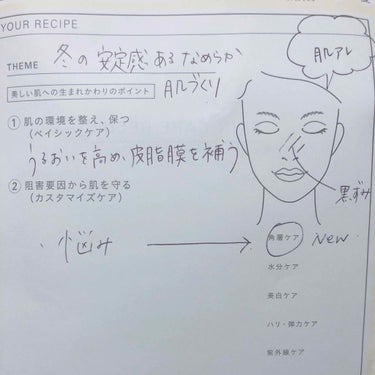 YOUR RECIPE
THEME 冬の安定感あるなめらか
肌づくり
美しい肌への生まれかわりのポイント
① 肌の環境を整え、保つ
(ベイシックケア)
うるおいを高め、皮脂膜を補う
② 阻害要因から肌を守る
(カスタマイズケア)
肌アレ
黒ずみ
・悩み
角層ケア NEW
水分ケア
美白ケア
ハリ・弾力ケア
紫外線ケア